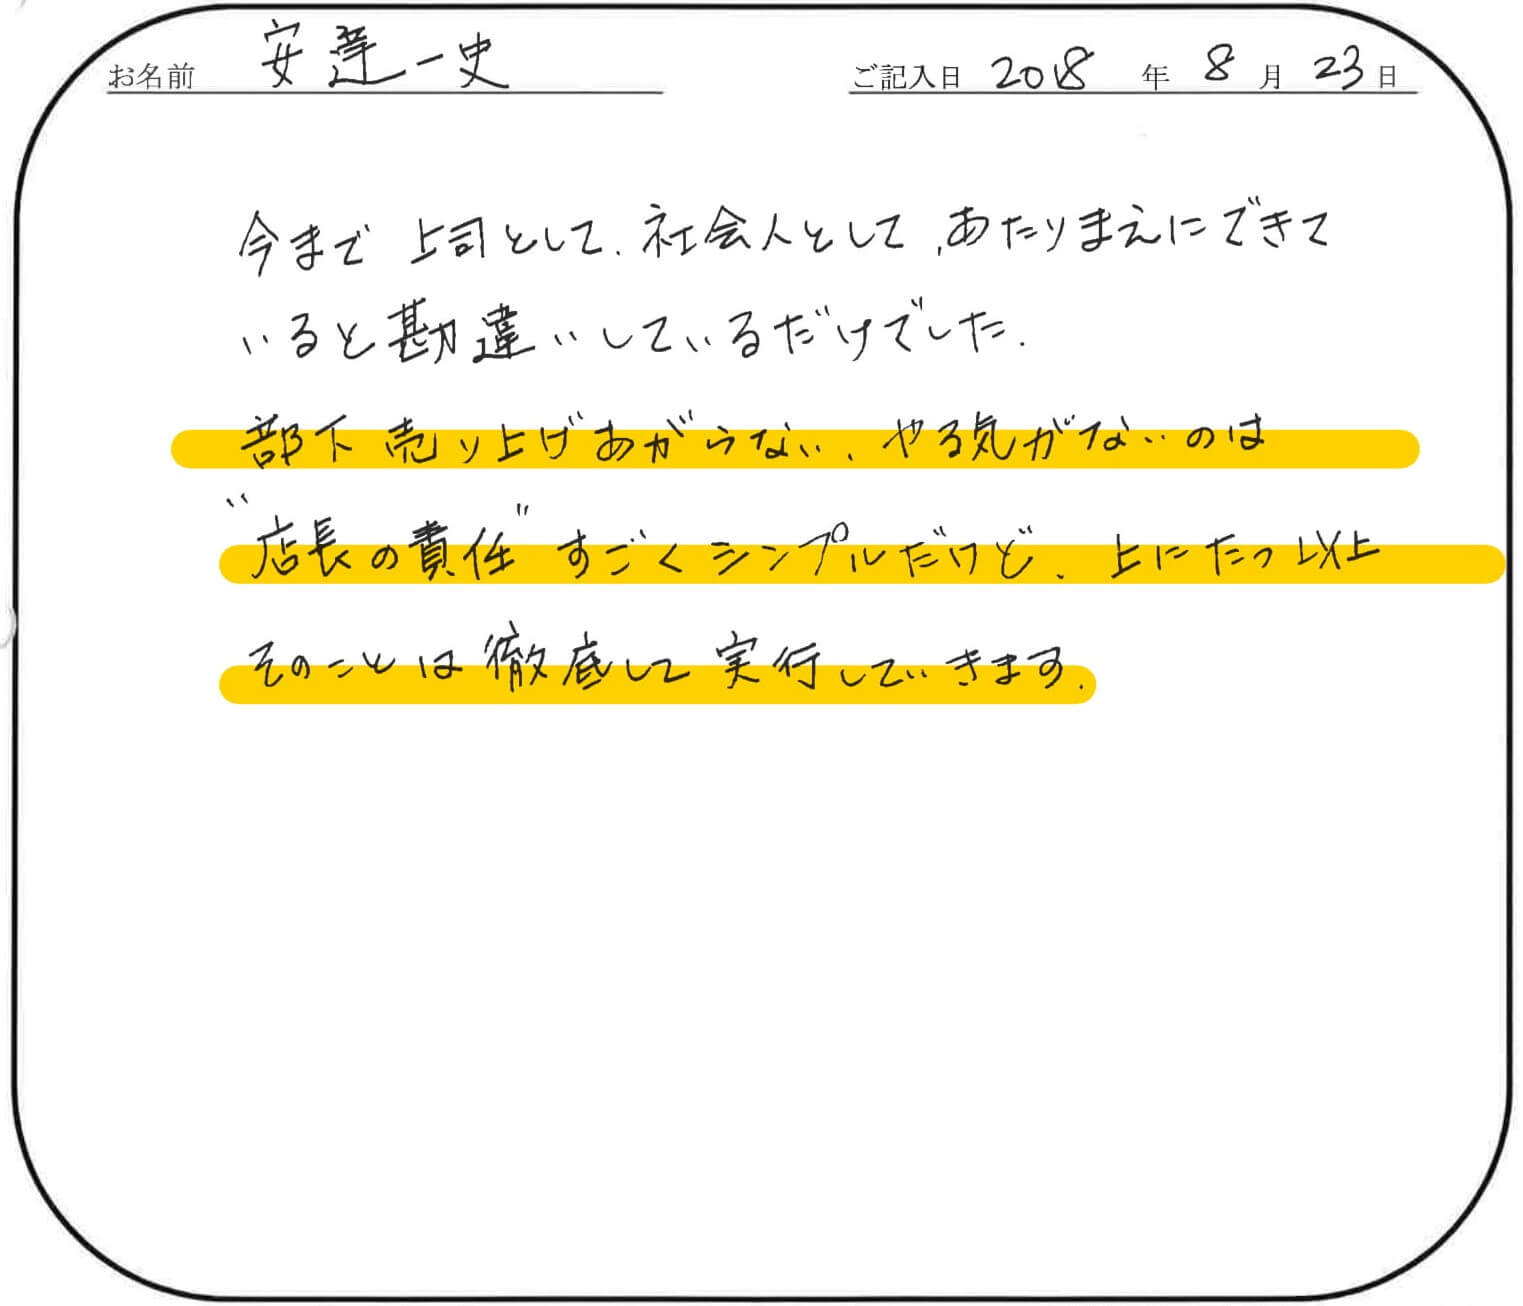 お名前 安達一史 ご記入日 2018 年 8 月 23 日
今まで 上司として、社会人として、あたりまえにできて
いると勘違いしているだけでした.
部下 売り上げあがらない、やる気がないのは
"店長の責任" すごくシンプルだけど、上にたつ以上
そのことは徹底して実行していきます.